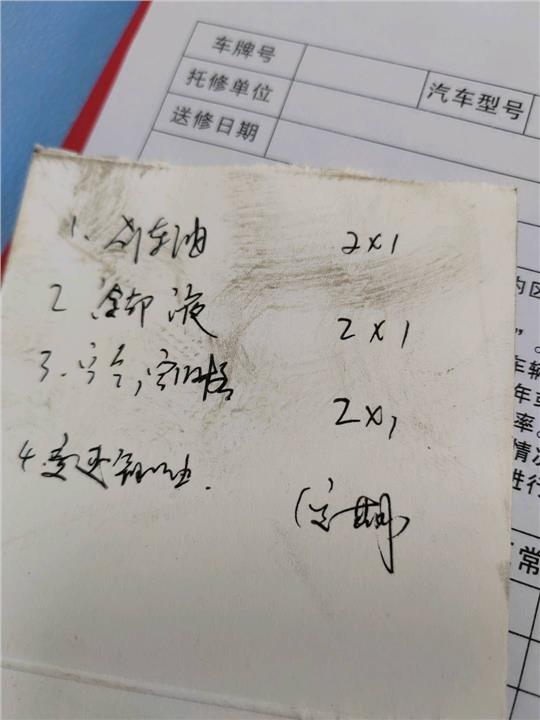 车牌号
托修单位 汽车型号
送修日期
1. 刹车油 2×1
2 冷却液 2×1
3. 空气,空调格 2×1
4. 变速箱油.
(定期)
的区
”。
车辆
年或
率。
情况
进行
常